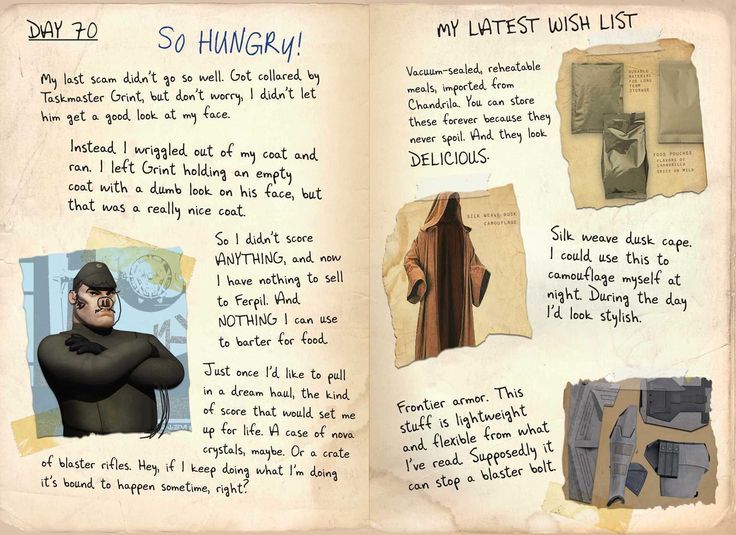 DAY 70
SO HUNGRY!
My last scam didn't go so well. Got collared by
Taskmaster Grint, but don't worry, I didn't let
him get a good look at my face.
Instead I wriggled out of my coat and
ran. I left Grint holding an empty
coat with a dumb look on his face, but
that was a really nice coat.
So I didn't score
ANYTHING, and now
I have nothing to sell
to Ferpil. And
NOTHING I can use
to barter for food.
Just once I'd like to pull
in a dream haul, the kind
of score that would set me
up for life. A case of nova
crystals, maybe. Or a crate
of blaster rifles. Hey, if I keep doing what I'm doing
it's bound to happen sometime, right?
MY LATEST WISH LIST
Vacuum-sealed, reheatable
meals, imported from
Chandrila. You can store
these forever because they
never spoil. And they look
DELICIOUS.
DURABLE
MATERIAL
FOR LONG
TERM
STORAGE
FOOD POUCHES
FLAVORS OF
CHANDRILLA
SPICY OR MILD
SILK WEAVE DUSK
CAMOUFLAGE
Silk weave dusk cape.
I could use this to
camouflage myself at
night. During the day
I'd look stylish.
Frontier armor. This
stuff is lightweight
and flexible from what
I've read. Supposedly it
can stop a blaster bolt.